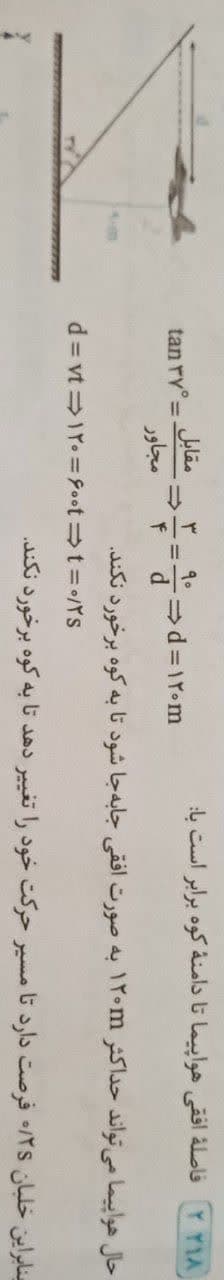 ۲۱۸ ۲ فاصلهٔ افقی هواپیما تا دامنهٔ کوه برابر است با:
tan ۳۷° = مقابل / مجاور ⇒ ۳/۴ = ۹۰/d ⇒ d = ۱۲۰ m
حال هواپیما می‌تواند حداکثر ۱۲۰ m به صورت افقی جابه‌جا شود تا به کوه برخورد نکند.
d = vt ⇒ ۱۲۰ = ۶۰۰t ⇒ t = ۰/۲s
بنابراین خلبان ۰/۲s فرصت دارد تا مسیر حرکت خود را تغییر دهد تا به کوه برخورد نکند.
d
۳۷°